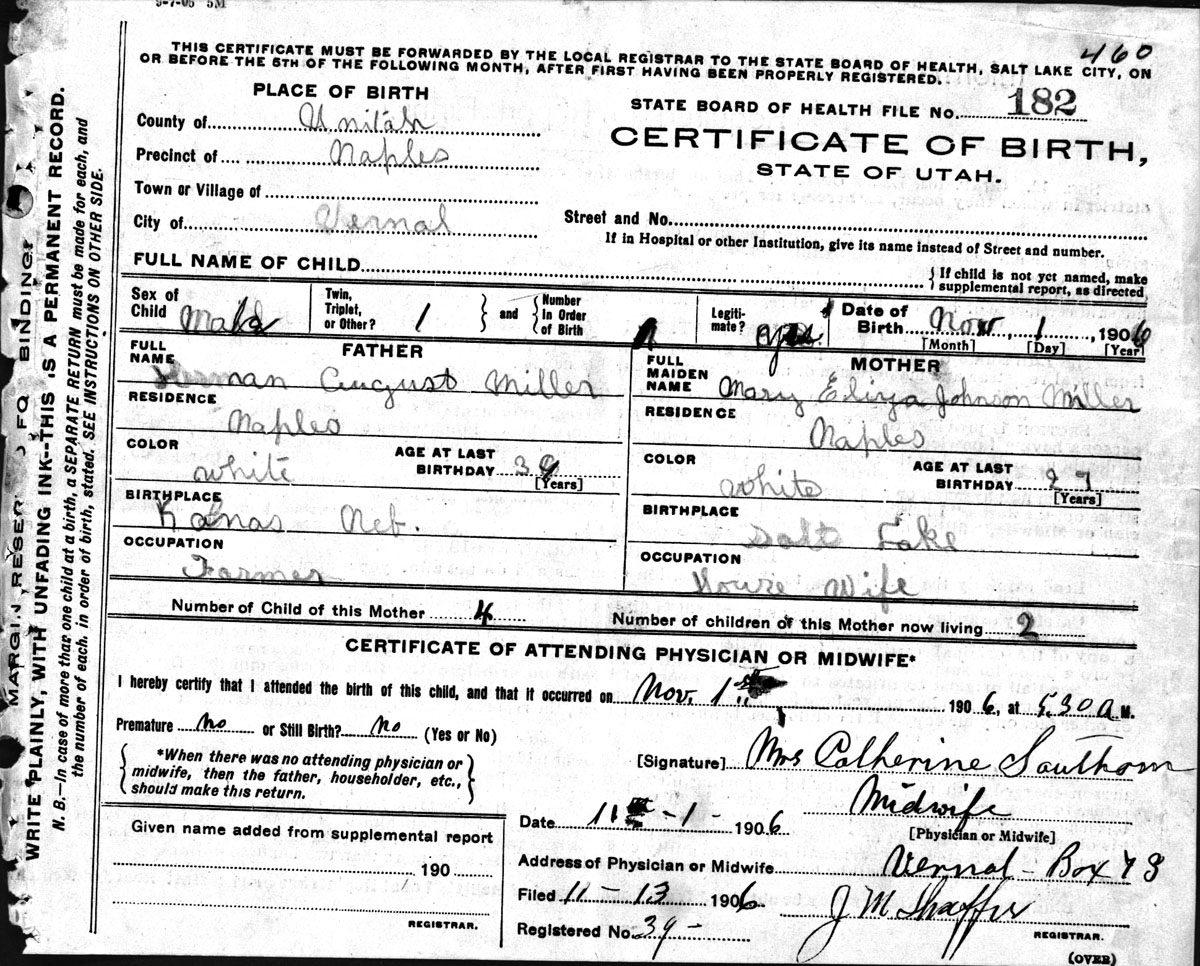 9-7-05 5M
460
THIS CERTIFICATE MUST BE FORWARDED BY THE LOCAL REGISTRAR TO THE STATE BOARD OF HEALTH, SALT LAKE CITY, ON
OR BEFORE THE 5TH OF THE FOLLOWING MONTH, AFTER FIRST HAVING BEEN PROPERLY REGISTERED.
PLACE OF BIRTH
STATE BOARD OF HEALTH FILE No. 182
County of Unitah
CERTIFICATE OF BIRTH,
Precinct of Naples
STATE OF UTAH.
Town or Village of
City of Vernal
Street and No.
If in Hospital or other Institution, give its name instead of Street and number.
FULL NAME OF CHILD
{ If child is not yet named, make
supplemental report, as directed
Sex of Child Male
Twin, Triplet, or Other? 1
and
Number In Order of Birth
Legiti- mate? yes
Date of Birth Nov, 1, 1906
[Month] [Day] [Year]
FATHER
FULL NAME Herman August Miller
RESIDENCE
Naples
COLOR white
AGE AT LAST BIRTHDAY 39 [Years]
BIRTHPLACE
Neb.
OCCUPATION
Farmer
MOTHER
FULL MAIDEN NAME Mary Eliza Johnson Miller
RESIDENCE
Naples
COLOR white
AGE AT LAST BIRTHDAY 27 [Years]
BIRTHPLACE
Salt Lake
OCCUPATION
House Wife
Number of Child of this Mother 4
Number of children of this Mother now living 2
CERTIFICATE OF ATTENDING PHYSICIAN OR MIDWIFE*
I hereby certify that I attended the birth of this child, and that it occurred on Nov. 1st 1906, at 5.30 A M.
Premature No or Still Birth? No (Yes or No)
*When there was no attending physician or
midwife, then the father, householder, etc.,
should make this return.
[Signature] Mrs Catherine Southam
Midwife
[Physician or Midwife]
Date 11 - 1 - 1906
Address of Physician or Midwife Vernal - Box 73
Filed 11 - 13 1906 J M Shaffer
Registered No. 39 -
REGISTRAR.
(OVER)
Given name added from supplemental report
190
REGISTRAR.
MARGIN RESER FO BINDING
WRITE PLAINLY, WITH UNFADING INK--THIS IS A PERMANENT RECORD.
N. B.—In case of more than one child at a birth, a SEPARATE RETURN must be made for each, and
the number of each, in order of birth, stated. SEE INSTRUCTIONS ON OTHER SIDE.